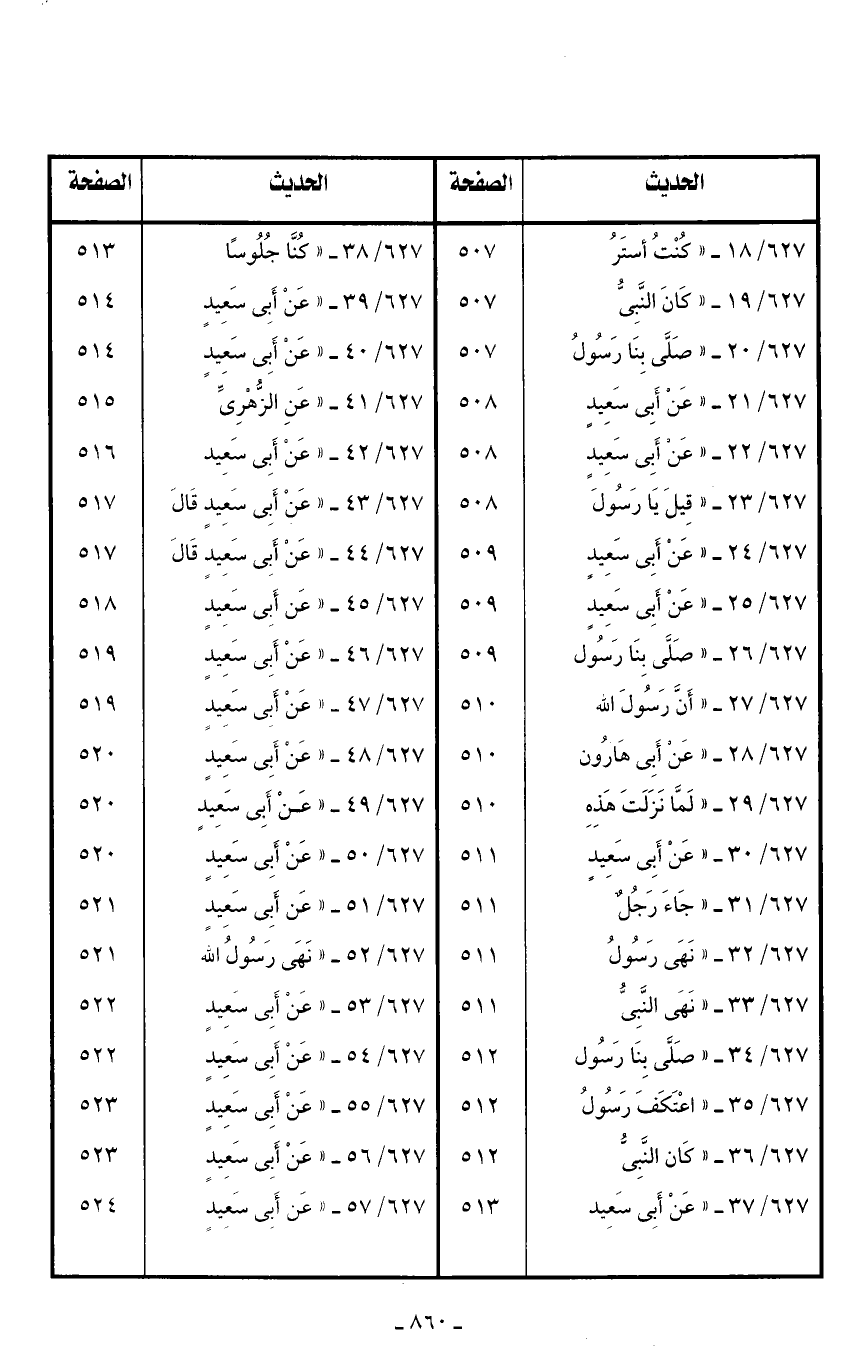 الحديث الصفحة الحديث الصفحة
١٨/٦٢٧ ـ « كُنْتُ أستَرُ ٥٠٧ ٣٨/٦٢٧ ـ « كُنَّا جُلُوسًا ٥١٣
١٩/٦٢٧ ـ « كَانَ النَّبِىُّ ٥٠٧ ٣٩/٦٢٧ ـ « عَنْ أَبِى سَعِيدٍ ٥١٤
٢٠/٦٢٧ ـ « صَلَّى بِنَا رَسُولُ ٥٠٧ ٤٠/٦٢٧ ـ « عَنْ أَبِى سَعِيدٍ ٥١٤
٢١/٦٢٧ ـ « عَنْ أَبِى سَعِيدٍ ٥٠٨ ٤١/٦٢٧ ـ « عَنِ الزُّهْرِىِّ ٥١٥
٢٢/٦٢٧ ـ « عَنْ أَبِى سَعِيدٍ ٥٠٨ ٤٢/٦٢٧ ـ « عَنْ أَبِى سَعِيد ٥١٦
٢٣/٦٢٧ ـ « قِيلَ يَا رَسُولَ ٥٠٨ ٤٣/٦٢٧ ـ « عَنْ أَبِى سَعِيدٍ قَالَ ٥١٧
٢٤/٦٢٧ ـ « عَنْ أَبِى سَعِيدٍ ٥٠٩ ٤٤/٦٢٧ ـ « عَنْ أَبِى سَعِيدٍ قَالَ ٥١٧
٢٥/٦٢٧ ـ « عَنْ أَبِى سَعِيدٍ ٥٠٩ ٤٥/٦٢٧ ـ « عَن أَبِى سَعِيدٍ ٥١٨
٢٦/٦٢٧ ـ « صَلَّى بِنَا رَسُول ٥٠٩ ٤٦/٦٢٧ ـ « عَنْ أَبِى سَعِيدٍ ٥١٩
٢٧/٦٢٧ ـ « أَنَّ رَسُولَ الله ٥١٠ ٤٧/٦٢٧ ـ « عَنْ أَبِى سَعِيدٍ ٥١٩
٢٨/٦٢٧ ـ « عَنْ أَبِى هَارُون ٥١٠ ٤٨/٦٢٧ ـ « عَنْ أَبِى سَعِيدٍ ٥٢٠
٢٩/٦٢٧ ـ « لَمَّا نَزَلَتَ هَذِهِ ٥١٠ ٤٩/٦٢٧ ـ « عَـنْ أَبِى سَعِيدٍ ٥٢٠
٣٠/٦٢٧ ـ « عَنْ أَبِى سَعِيدٍ ٥١١ ٥٠/٦٢٧ ـ « عَنْ أَبِى سَعِيدٍ ٥٢٠
٣١/٦٢٧ ـ « جَاءَ رَجُلٌ ٥١١ ٥١/٦٢٧ ـ « عَن أَبِى سَعِيدٍ ٥٢١
٣٢/٦٢٧ ـ « نَهَى رَسُولُ ٥١١ ٥٢/٦٢٧ ـ « نَهَى رَسُولُ الله ٥٢١
٣٣/٦٢٧ ـ « نَهَى النَّبِىُّ ٥١١ ٥٣/٦٢٧ ـ « عَنْ أَبِى سَعِيدٍ ٥٢٢
٣٤/٦٢٧ ـ « صَلَّى بِنَا رَسُول ٥١٢ ٥٤/٦٢٧ ـ « عَنْ أَبِى سَعِيدٍ ٥٢٢
٣٥/٦٢٧ ـ « اعْتَكَفَ رَسُولُ ٥١٢ ٥٥/٦٢٧ ـ « عَنْ أَبِى سَعِيدٍ ٥٢٣
٣٦/٦٢٧ ـ « كَان النَّبِىُّ ٥١٢ ٥٦/٦٢٧ ـ « عَنْ أَبِى سَعِيدٍ ٥٢٣
٣٧/٦٢٧ ـ « عَنْ أَبِى سَعِيد ٥١٣ ٥٧/٦٢٧ ـ « عَن أَبِى سَعِيدٍ ٥٢٤
ـ ٨٦٠ ـ